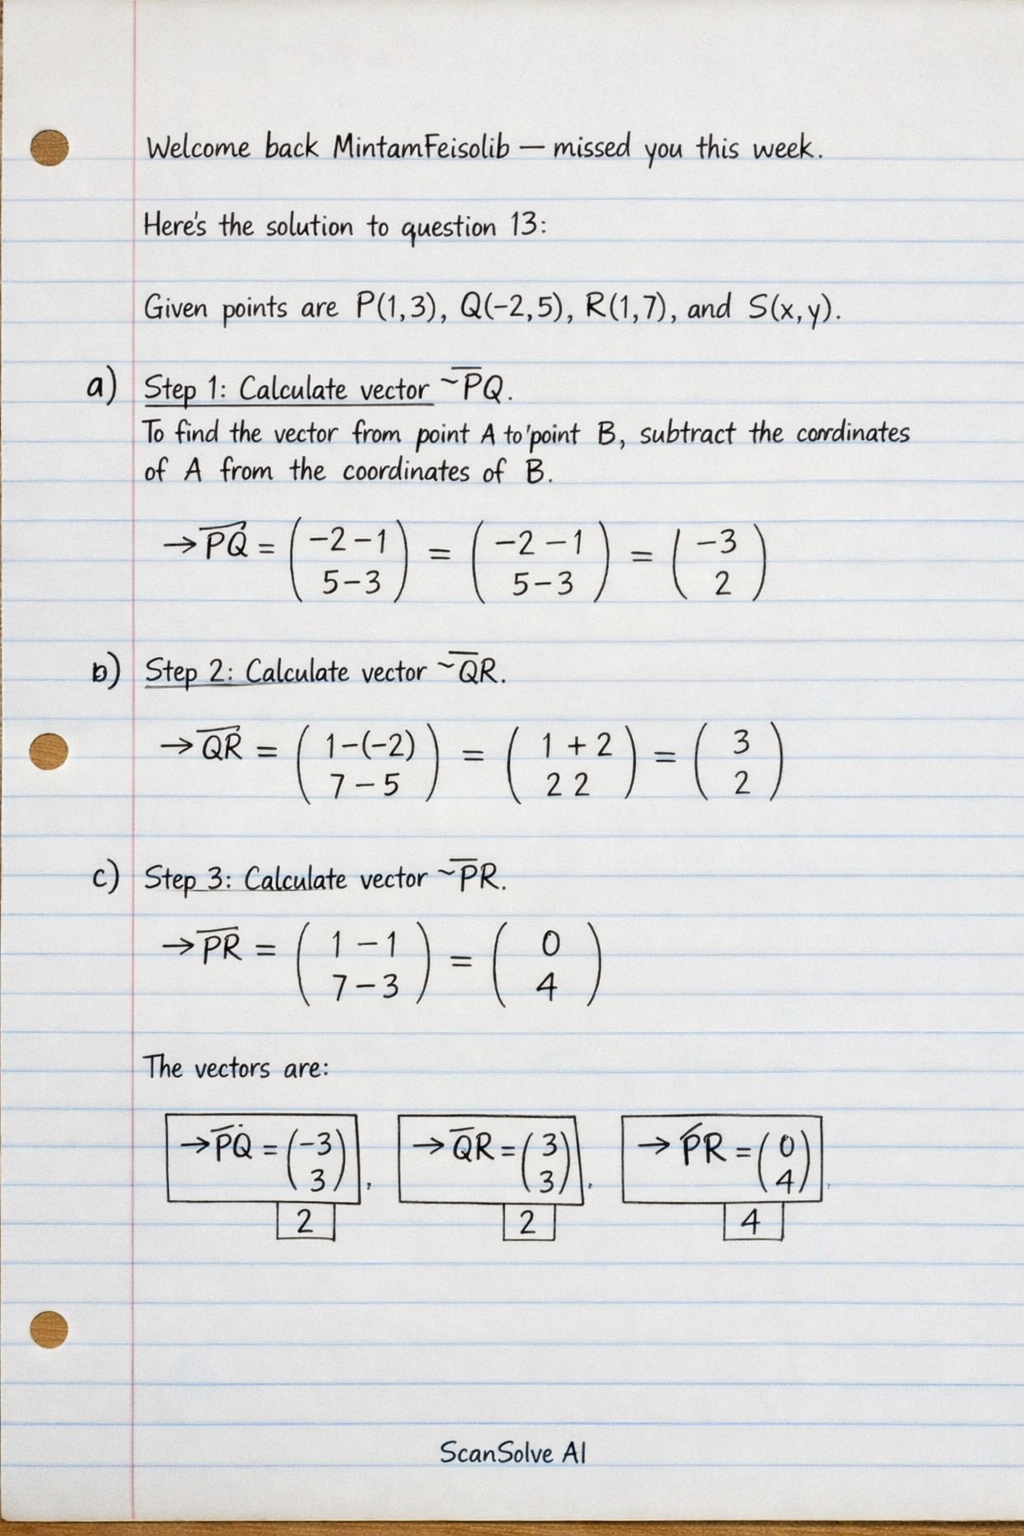 Welcome back MintamFeisolib — missed you this week.
Here's the solution to question 13:
Given points are P(1,3), Q(−2,5), R(1,7), and S(x,y).
a) Step 1: Calculate vector ~P̅Q.
To find the vector from point A to'point B, subtract the coordinates
of A from the coordinates of B.
→ P̅Q̅ = (−2−1 5−3) = (−2−1 5−3) = (−3 2)
b) Step 2: Calculate vector ~Q̅R.
→ Q̅R̅ = (1−(−2) 7−5) = (1+2 2 2) = (3 2)
c) Step 3: Calculate vector ~P̅R.
→ P̅R̅ = (1−1 7−3) = (0 4)
The vectors are:
→ P̅Q̅ = (−3 3), → Q̅R = (3 3), → P̅R = (0 4),
2 2 4
ScanSolve AI